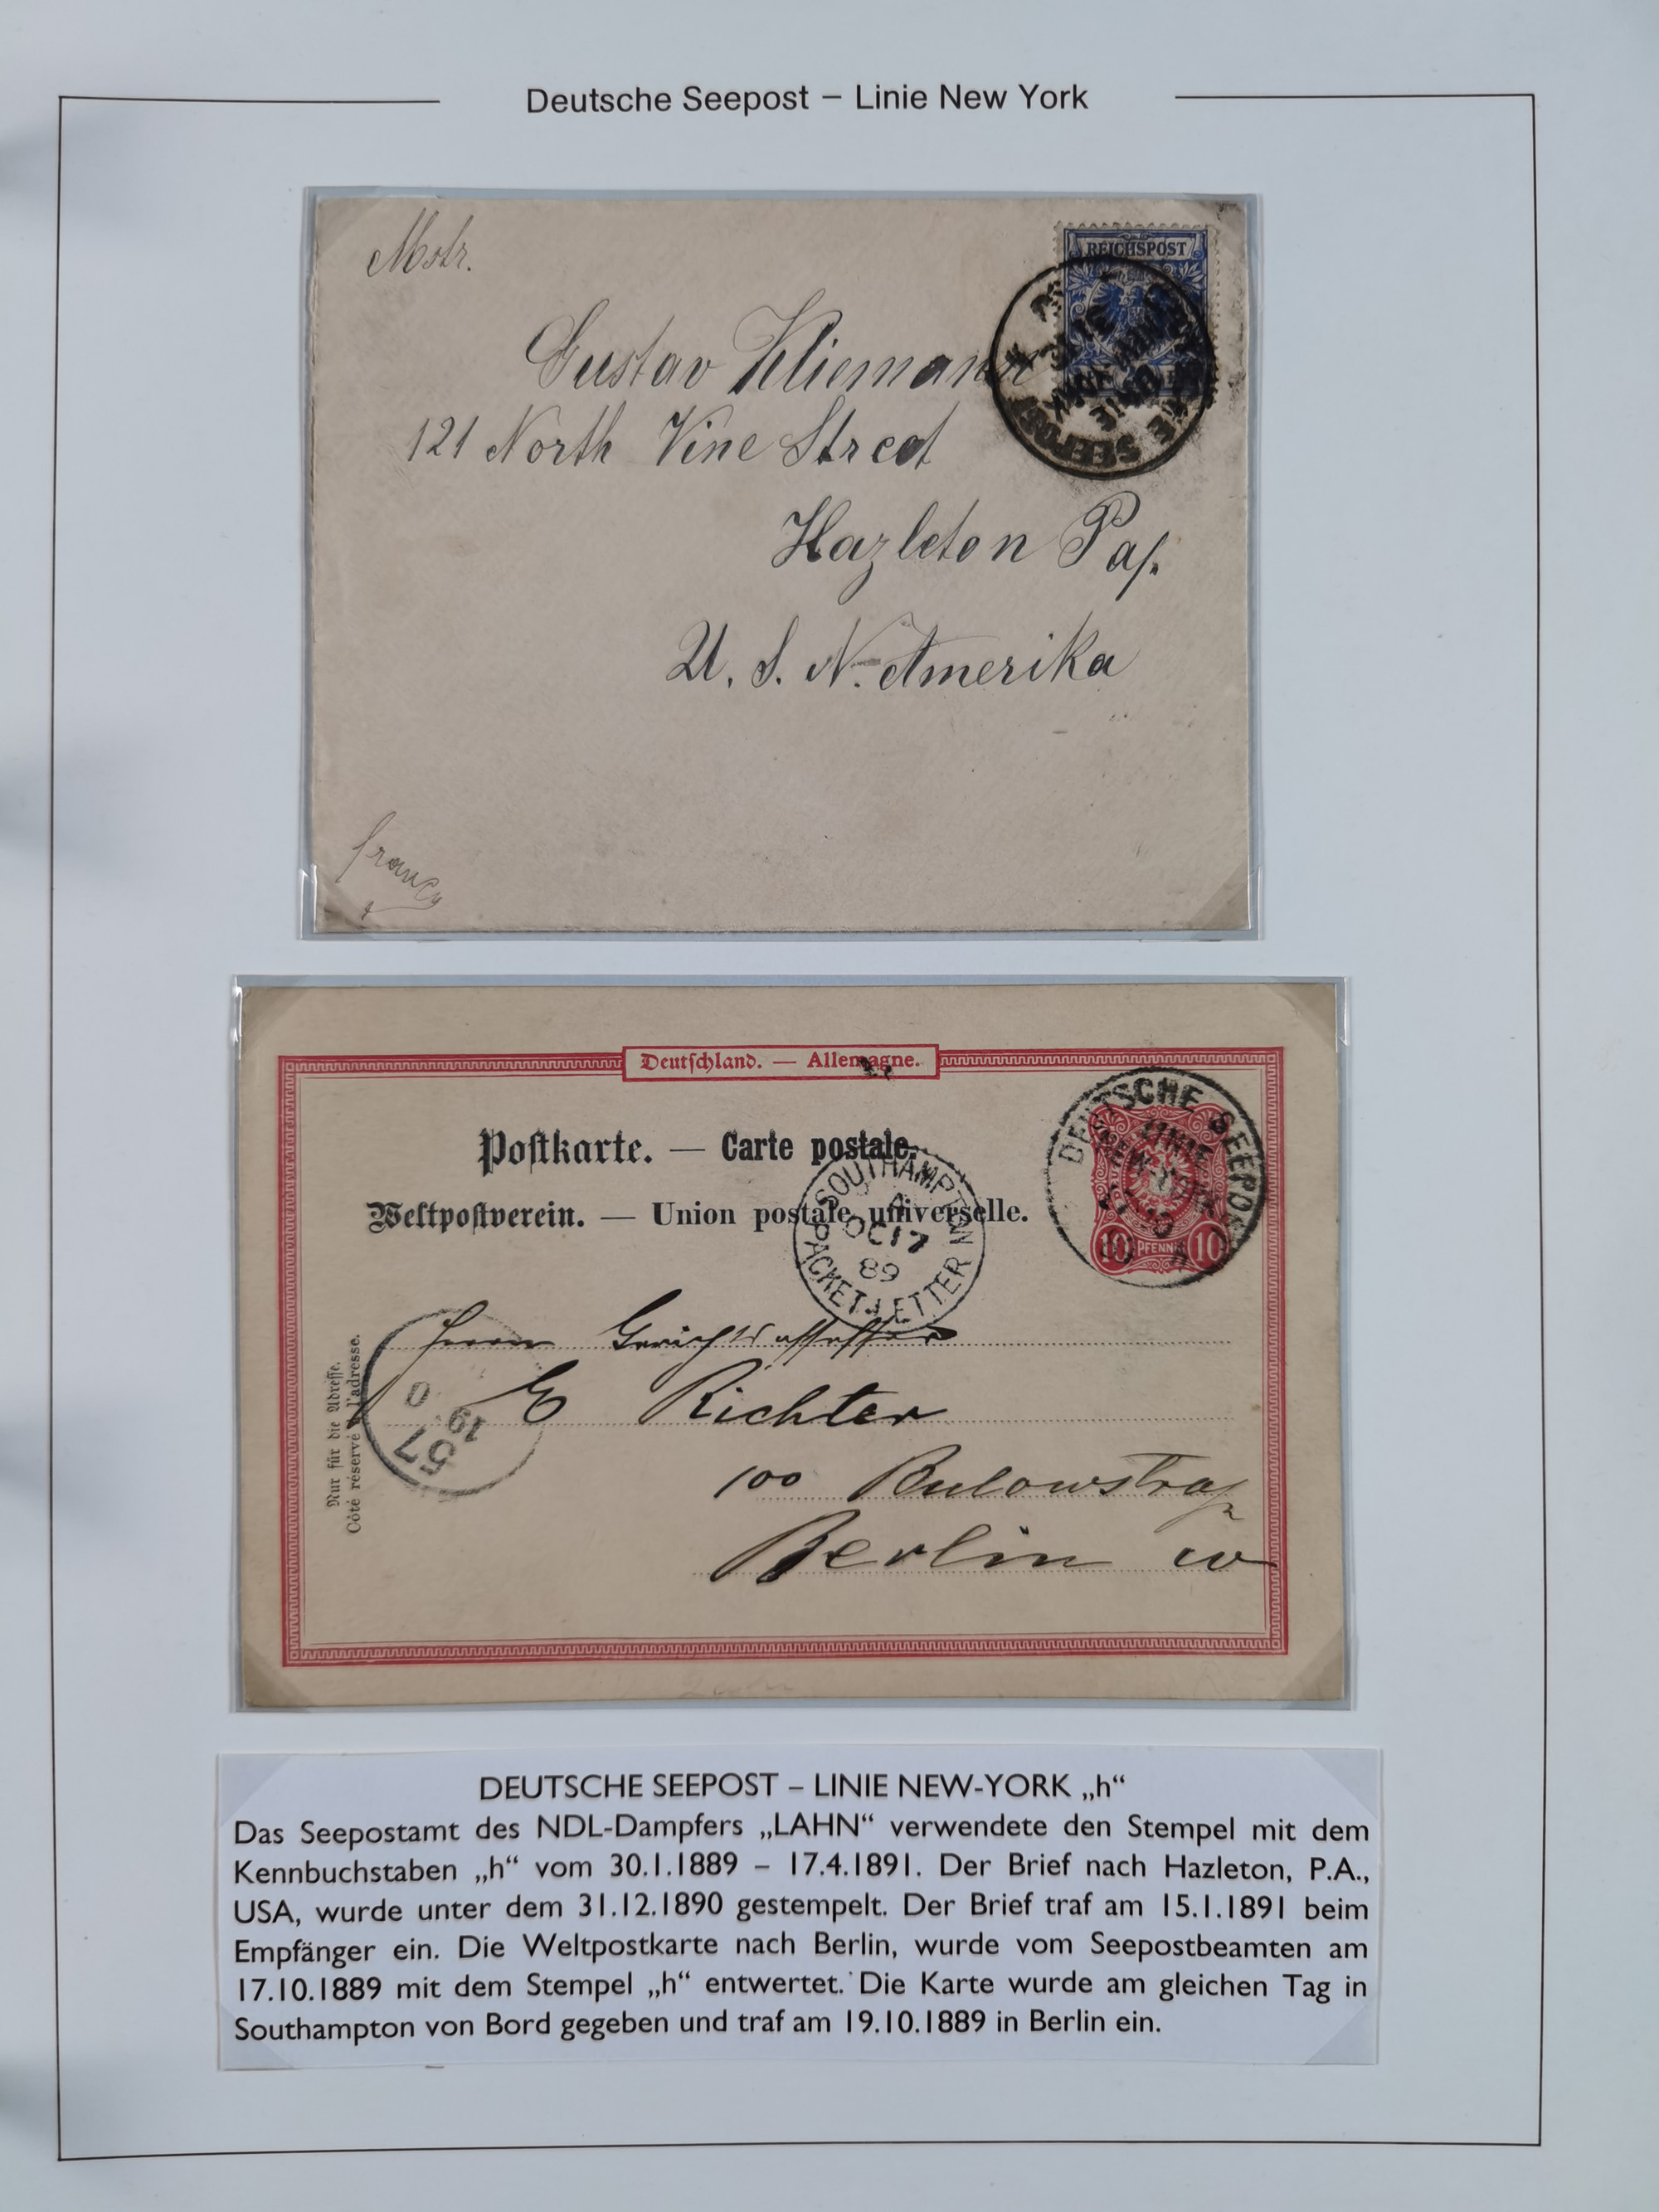 Deutsche Seepost – Linie New York
Mstr.
REICHSPOST
Gustav Kliemann
121 North Vine Street
SEEPOST
Hazleton Pa.
U. S. N. Amerika
franco
Deutschland. — Allemagne.
Postkarte. — Carte postale.
Weltpostverein. — Union postale universelle.
DEUTSCHE SEEPOST
LINIE
NEW-YORK
10 PFENNIG 10
SOUTHAMPTON
A
OC 17
89
PACKET-LETTER
Herrn Gerichtsassessor
E Richter
100 Bulowstraße
Berlin W
57
19
Nur für die Adresse.
Côté réservé à l'adresse.
DEUTSCHE SEEPOST – LINIE NEW-YORK „h“
Das Seepostamt des NDL-Dampfers „LAHN“ verwendete den Stempel mit dem
Kennbuchstaben „h“ vom 30.1.1889 – 17.4.1891. Der Brief nach Hazleton, P.A.,
USA, wurde unter dem 31.12.1890 gestempelt. Der Brief traf am 15.1.1891 beim
Empfänger ein. Die Weltpostkarte nach Berlin, wurde vom Seepostbeamten am
17.10.1889 mit dem Stempel „h“ entwertet. Die Karte wurde am gleichen Tag in
Southampton von Bord gegeben und traf am 19.10.1889 in Berlin ein.